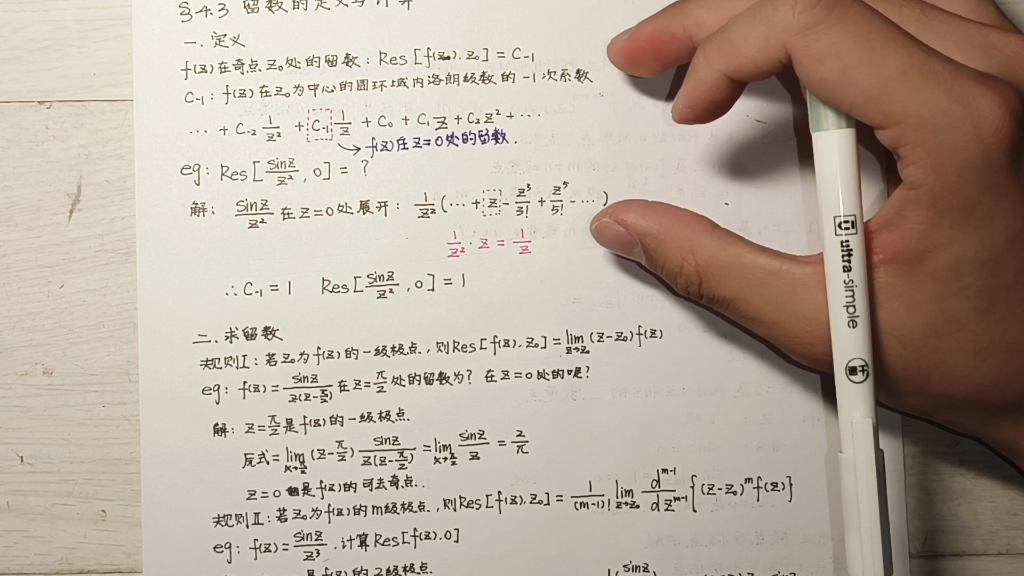 §4.3 留数的定义与计算
一.定义
f(z)在奇点z₀处的留数:Res[f(z).z₀]=C₋₁
C₋₁:f(z)在z₀为中心的圆环域内洛朗级数的-1次系数
…+C₋₂ 1/z² + C₋₁ 1/z + C₀ + C₁z + C₂z² + …
→f(z)在z=0处的留数.
eg:Res[sinz/z²,0]=?
解: sinz/z² 在z=0处展开: 1/z²(…+z-z³/3!+z⁵/5!-…)
1/z²·z=1/z
∴C₋₁=1 Res[sinz/z²,0]=1
二.求留数
规则I:若z₀为f(z)的一级极点,则Res[f(z).z₀]=lim z→z₀ (z-z₀)f(z)
eg:f(z)=sinz/z(z-π/2)在z=π/2处的留数为?在z=0处的呢?
解:z=π/2是f(z)的一级极点
原式=lim x→π/2 (z-π/2) sinz/z(z-π/2)=lim x→π/2 sinz/z=2/π
z=0 是f(z)的可去奇点.
规则II:若z₀为f(z)的m级极点,则Res[f(z).z₀]=1/(m-1)! lim z→z₀ dᵐ⁻¹/dzᵐ⁻¹{(z-z₀)ᵐf(z)}
eg:f(z)=sinz/z³.计算Res[f(z).0]
是f(z)的2级极点
ultra-simple